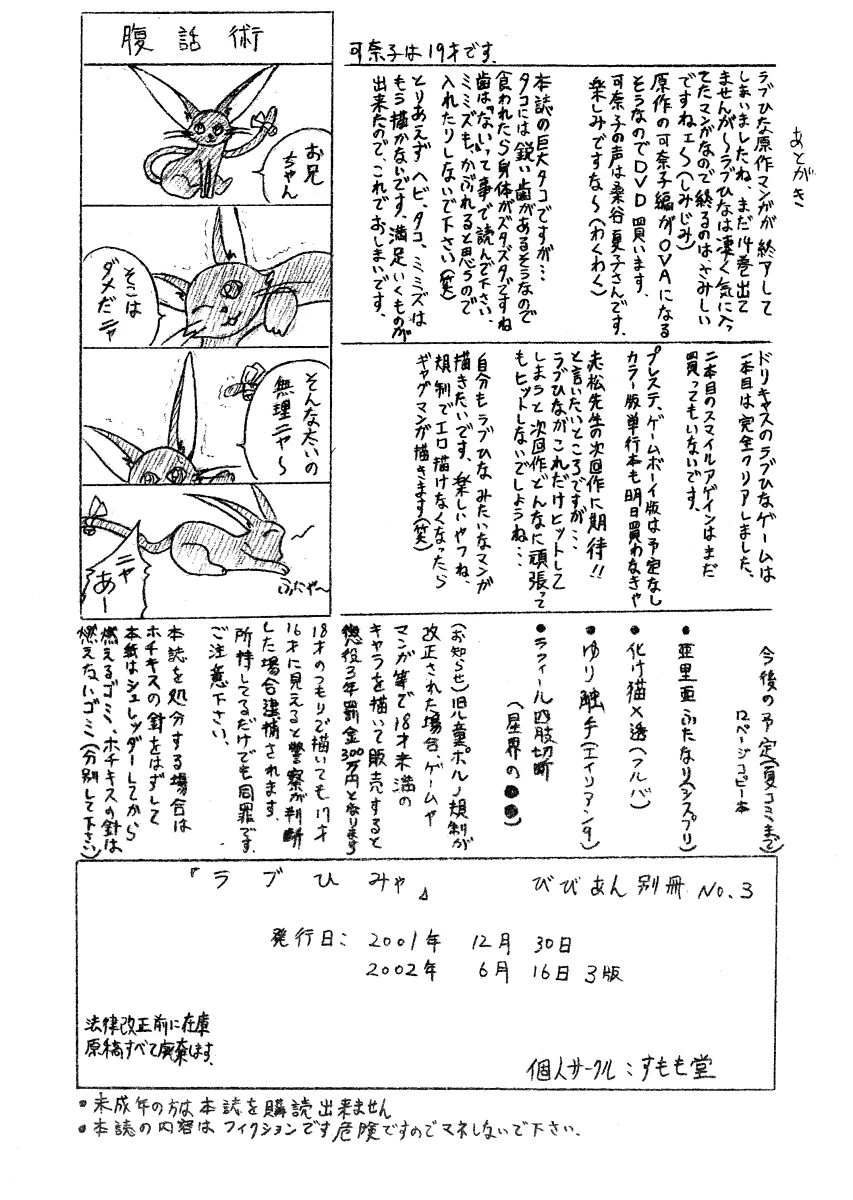 あとがき
ラブひな原作マンガが終アして
しまいましたね、まだ14巻出て
ませんが〜ラブひなは凄く気に入っ
てたマンガなので終るのは、さみしい
ですねェ〜(しみじみ)
原作の可奈子編がOVAになる
そうなのでDVD買います、
可奈子の声は桑谷夏子さんです、
楽しみですな〜(わくわく)
本誌の巨大タコですが…
タコには鋭い歯があるそうなので
食われたら身体がズタズタですね
歯は「ない」って事で読んで下さい、
ミミズも、かぶれると思うので
入れたりしないで下さい(笑)
とりあえず ヘビ、タコ、ミミズは
もう描かないです、満足いくものが
出来たので、これでおしまいです、
可奈子は19才です、
腹話術
お兄
ちゃん
そこは
ダメだニャ
そんな太いの
無理ニャ〜
ふにゃ〜
ニャ
あー
ドリキャスのラブひなゲームは
一本目は完全クリアしました、
二本目のスマイルアゲインはまだ
買ってもいないです、
プレステ、ゲームボーイ版は予定なし
カラー版単行本も明日買わなきゃ
赤松先生の次回作に期待!!
と言いたいところですが…
ラブひながこれだけヒットして
しまうと次回作どんなに頑張って
もヒットしないでしょうね…
自分もラブひなみたいなマンガ
描きたいです、楽しいやつね、
規制でエロ描けなくなったら
ギャグマンが描きます(笑)
今後の予定(夏コミまで)
12ページコピー本
●亜里亜ふたなり(シスプリ)
●化け猫×透(フルバ)
●ゆり触手(エイリアン9)
●ラフィール四肢切断
(星界の●●)
(お知らせ)旧児童ポルノ規制が
改正された場合、ゲームや
マンが等で18才未満の
キャラを描いて販売すると
懲役3年罰金300万円となります
18才のつもりで描いても17才
16才に見えると警察が判断
した場合逮捕されます、
所持してるだけでも同罪です、
ご注意下さい、
本誌を処分する場合は
ホチキスの針をはずして
本紙はシュレッダーしてから
燃えるゴミ、ホチキスの針は
燃えないゴミ(分別して下さい)
『ラブひみゃ』 びびあん別冊 No.3
発行日: 2001年 12月 30日
2002年 6月 16日 3版
法律改正前に在庫
原稿すべて廃棄します、
個人サークル:すもも堂
●未成年の方は本誌を購読出来ません
●本誌の内容はフィクションです危険ですのでマネしないで下さい、